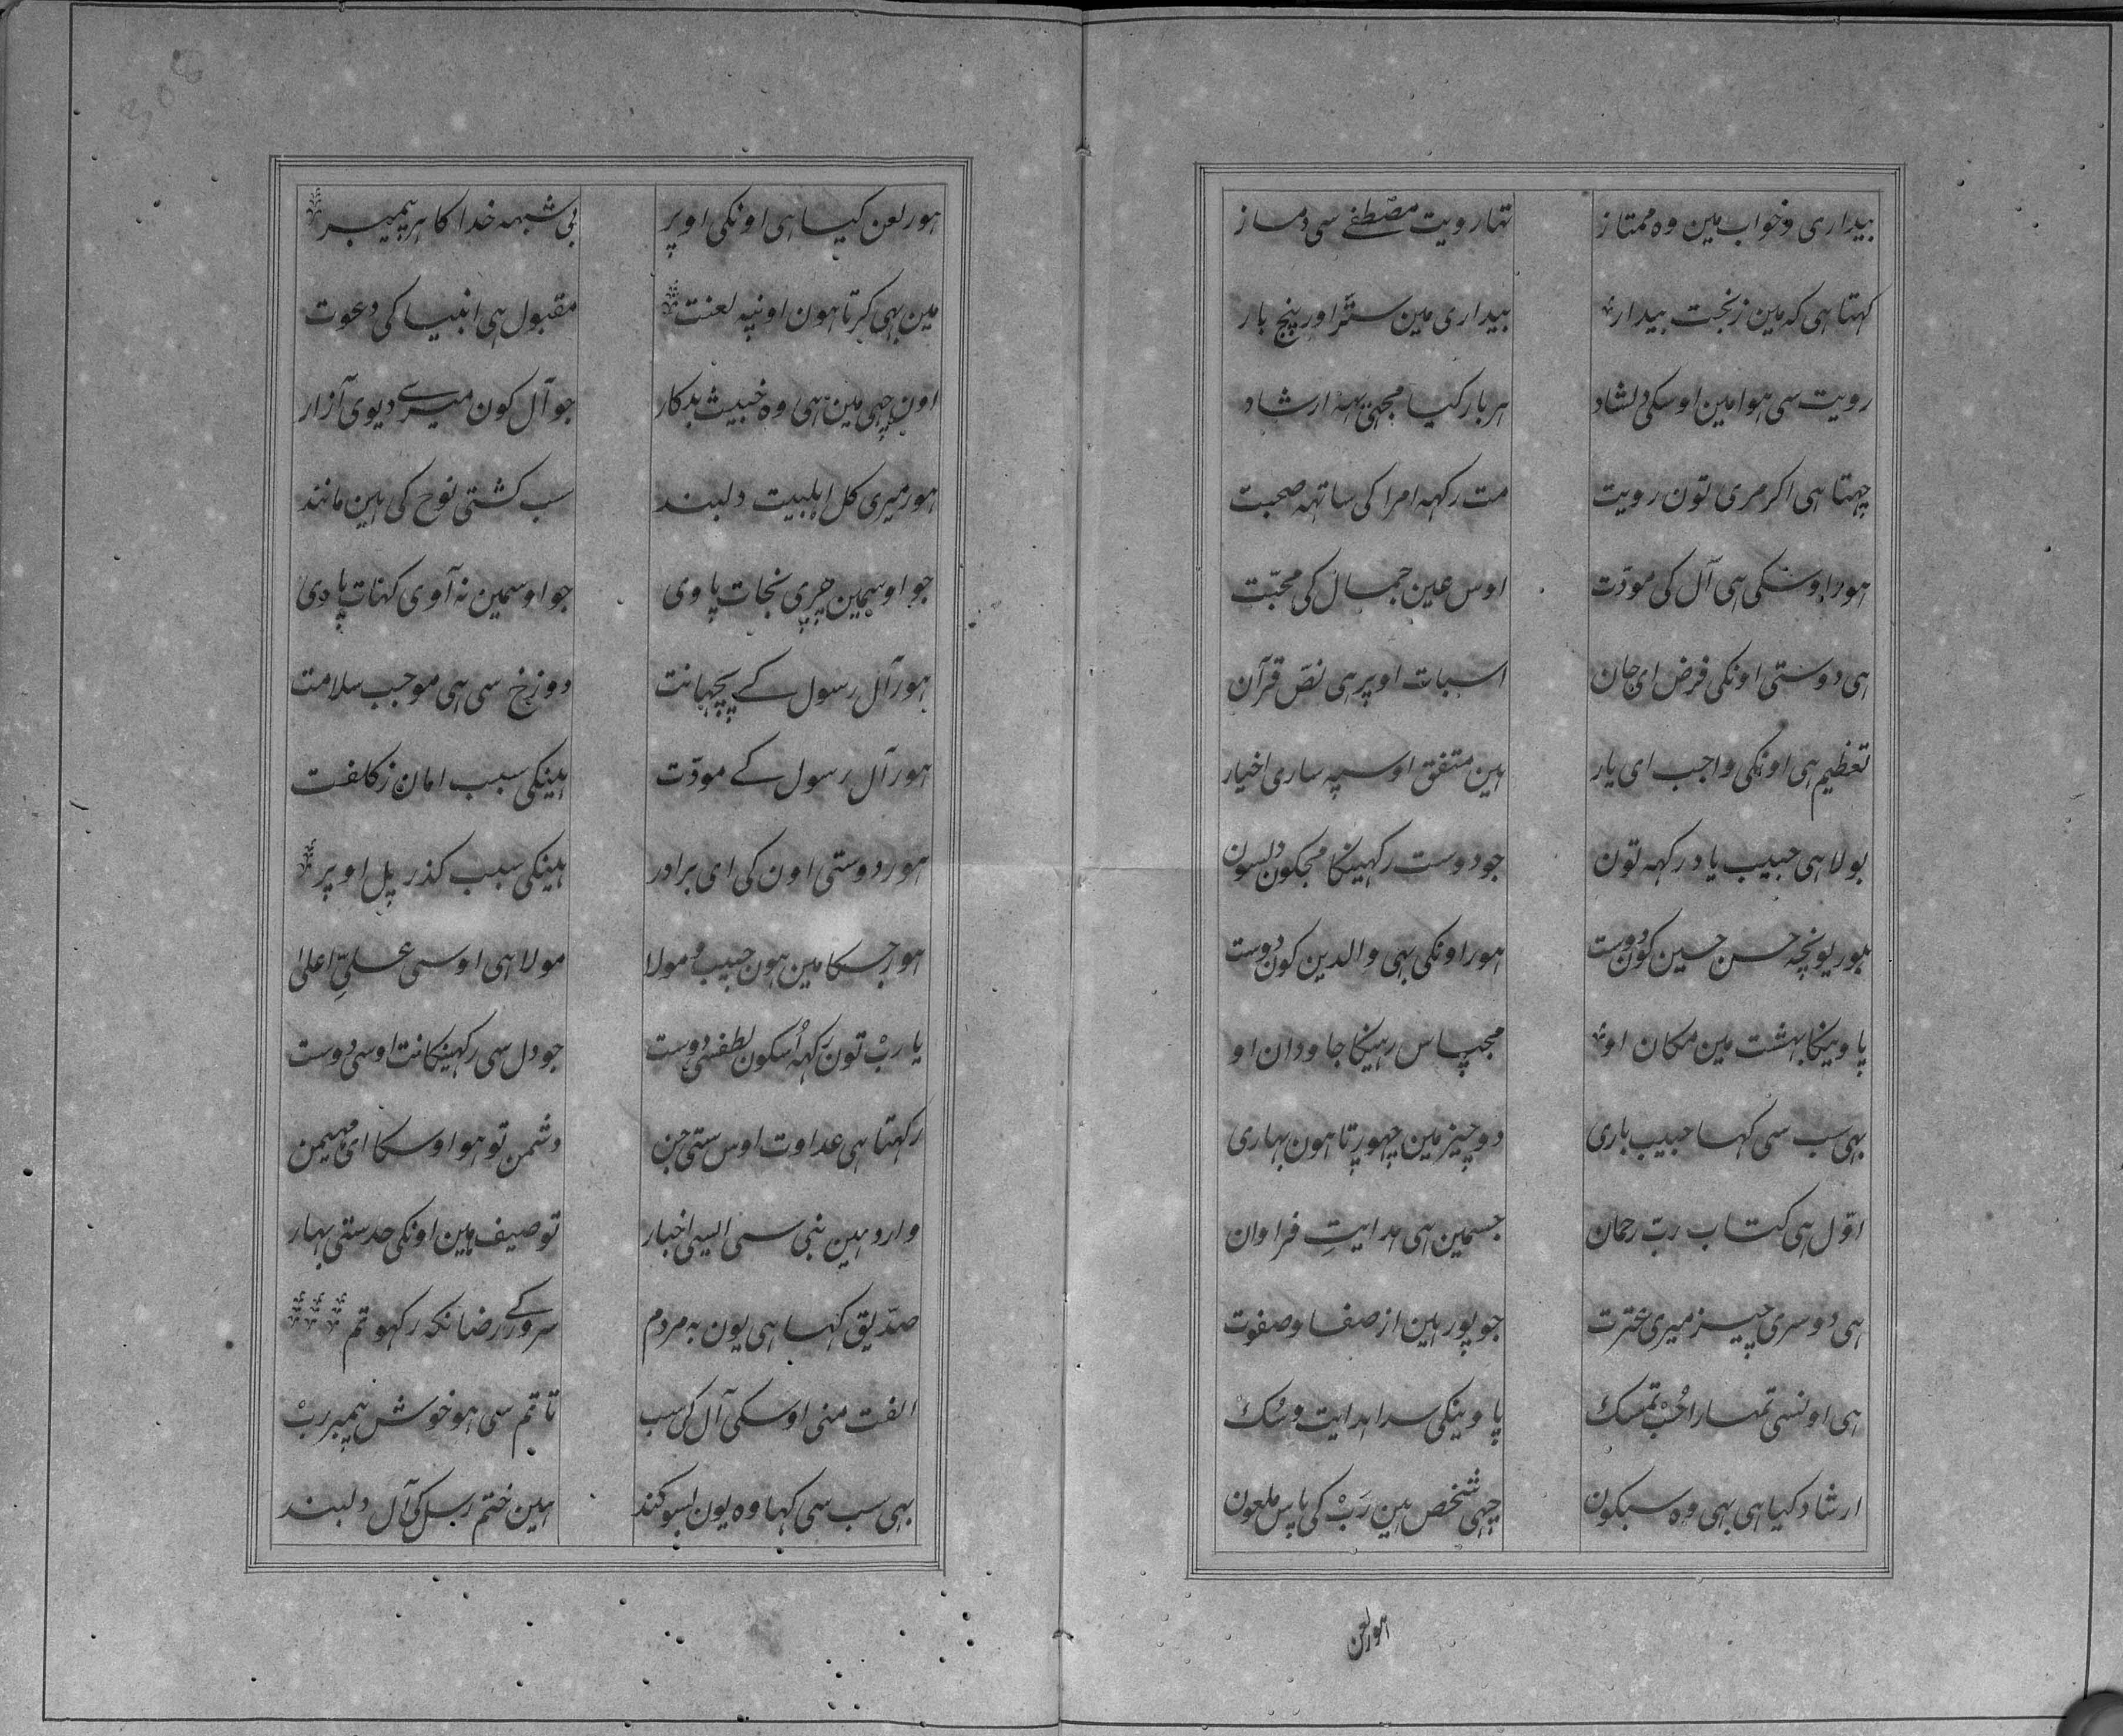 بیداری و خواب مین وہ ممتاز تہا رویت مصطفےٰ سی دمساز
کہتا ہی کہ مین ز بخت بیدار بیداری مین ستّر اور پنج بار
رویت سی ہوا مین اوسکی دلشاد ہر بار کیا مجہی یہہ ارشاد
چہتا ہی اکر مری تون رویت مت رکہہ امرا کی ساتہہ صحبت
ہور اوسکی ہی آل کی مودّت اوس عین جمال کی محبّت
ہی دوستی اونکی فرض ای جان اسبات اوپر ہی نصّ قرآن
تعظیم ہی اونکی واجب ای یار ہین متفق اوسپہ ساری اخیار
بولا ہی حبیب یاد رکہہ تون جو دوست رکہینکا مجکون دلسون
ہور یونچہ حسن حسین کون دوست ہور اونکی بہی والدین کون دوست
پاوینکا بہشت مین مکان او مجپاس رہینکا جاودان او
بہی سب سی کہا حبیب باری دو چیز مین چہورتا ہون بہاری
اوّل ہی کتاب ربّ رحمان جسمین ہی ہدایتِ فراوان
ہی دوسری چیز میری عترت جو پور ہین از صفا و صفوت
ہی اونسی تمہارا حُبْ تمسک پاوینکی سدا ہدایت و
ارشاد کیا ہی بہی وہ سبکون چہی شخص ہین رَبْ کی پاس ملعون
ہور لعن
ہور لعن کیا ہی اونکی اوپر بی شبہہ خدا کا ہر پیمبر
مین بہی کرتا ہون اونپہ لعنت مقبول ہی انبیا کی دعوت
اون چہی مین ہی وہ خبیث بدکار جو آل کون میرے دیوی آزار
ہور میری کل اہلبیت دلبند سب کشتی نوح کی ہین مانند
جو اوسمین چری نجات پاوی جو اوسمین نہ آوی کہات پاوی
ہور آل رسول کے پچہانت دوزخ سی ہی موجب سلامت
ہور آل رسول کے مودّت ہینکی سبب امان ز کلفت
ہور دوستی اون کی ای برادر ہینکی سبب کذر پل اوپر
ہور جسکا مین ہون حبیب و مولا مولا ہی اوسی علیِّ اعلیٰ
یا ربْ تون رکہہ اُسکون لطفسی دوست جو دل سی رکہینکا نت اوسی دوست
رکہتا ہی عداوت اوس ستی جن دشمن تو ہو اوسکا ای مہیمن
وارد ہین نبی سی ایسی اخبار توصیف مین اونکی حد ستی بہار
صدّیق کہا ہی یون بہ مردم سرور کے رضا نکہ رکہو تم
الفت منی اوسکی آل کی سب تا تم سی ہو خوش پیمبر ربْ
بہی سب سی کہا وہ یون بسوکند ہین ختم رسل کی آل دلبند